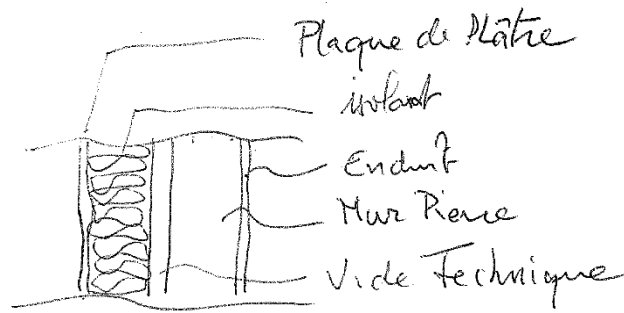 Plaque de Plâtre
isolant
Enduit
Mur Pierre
Vide Technique